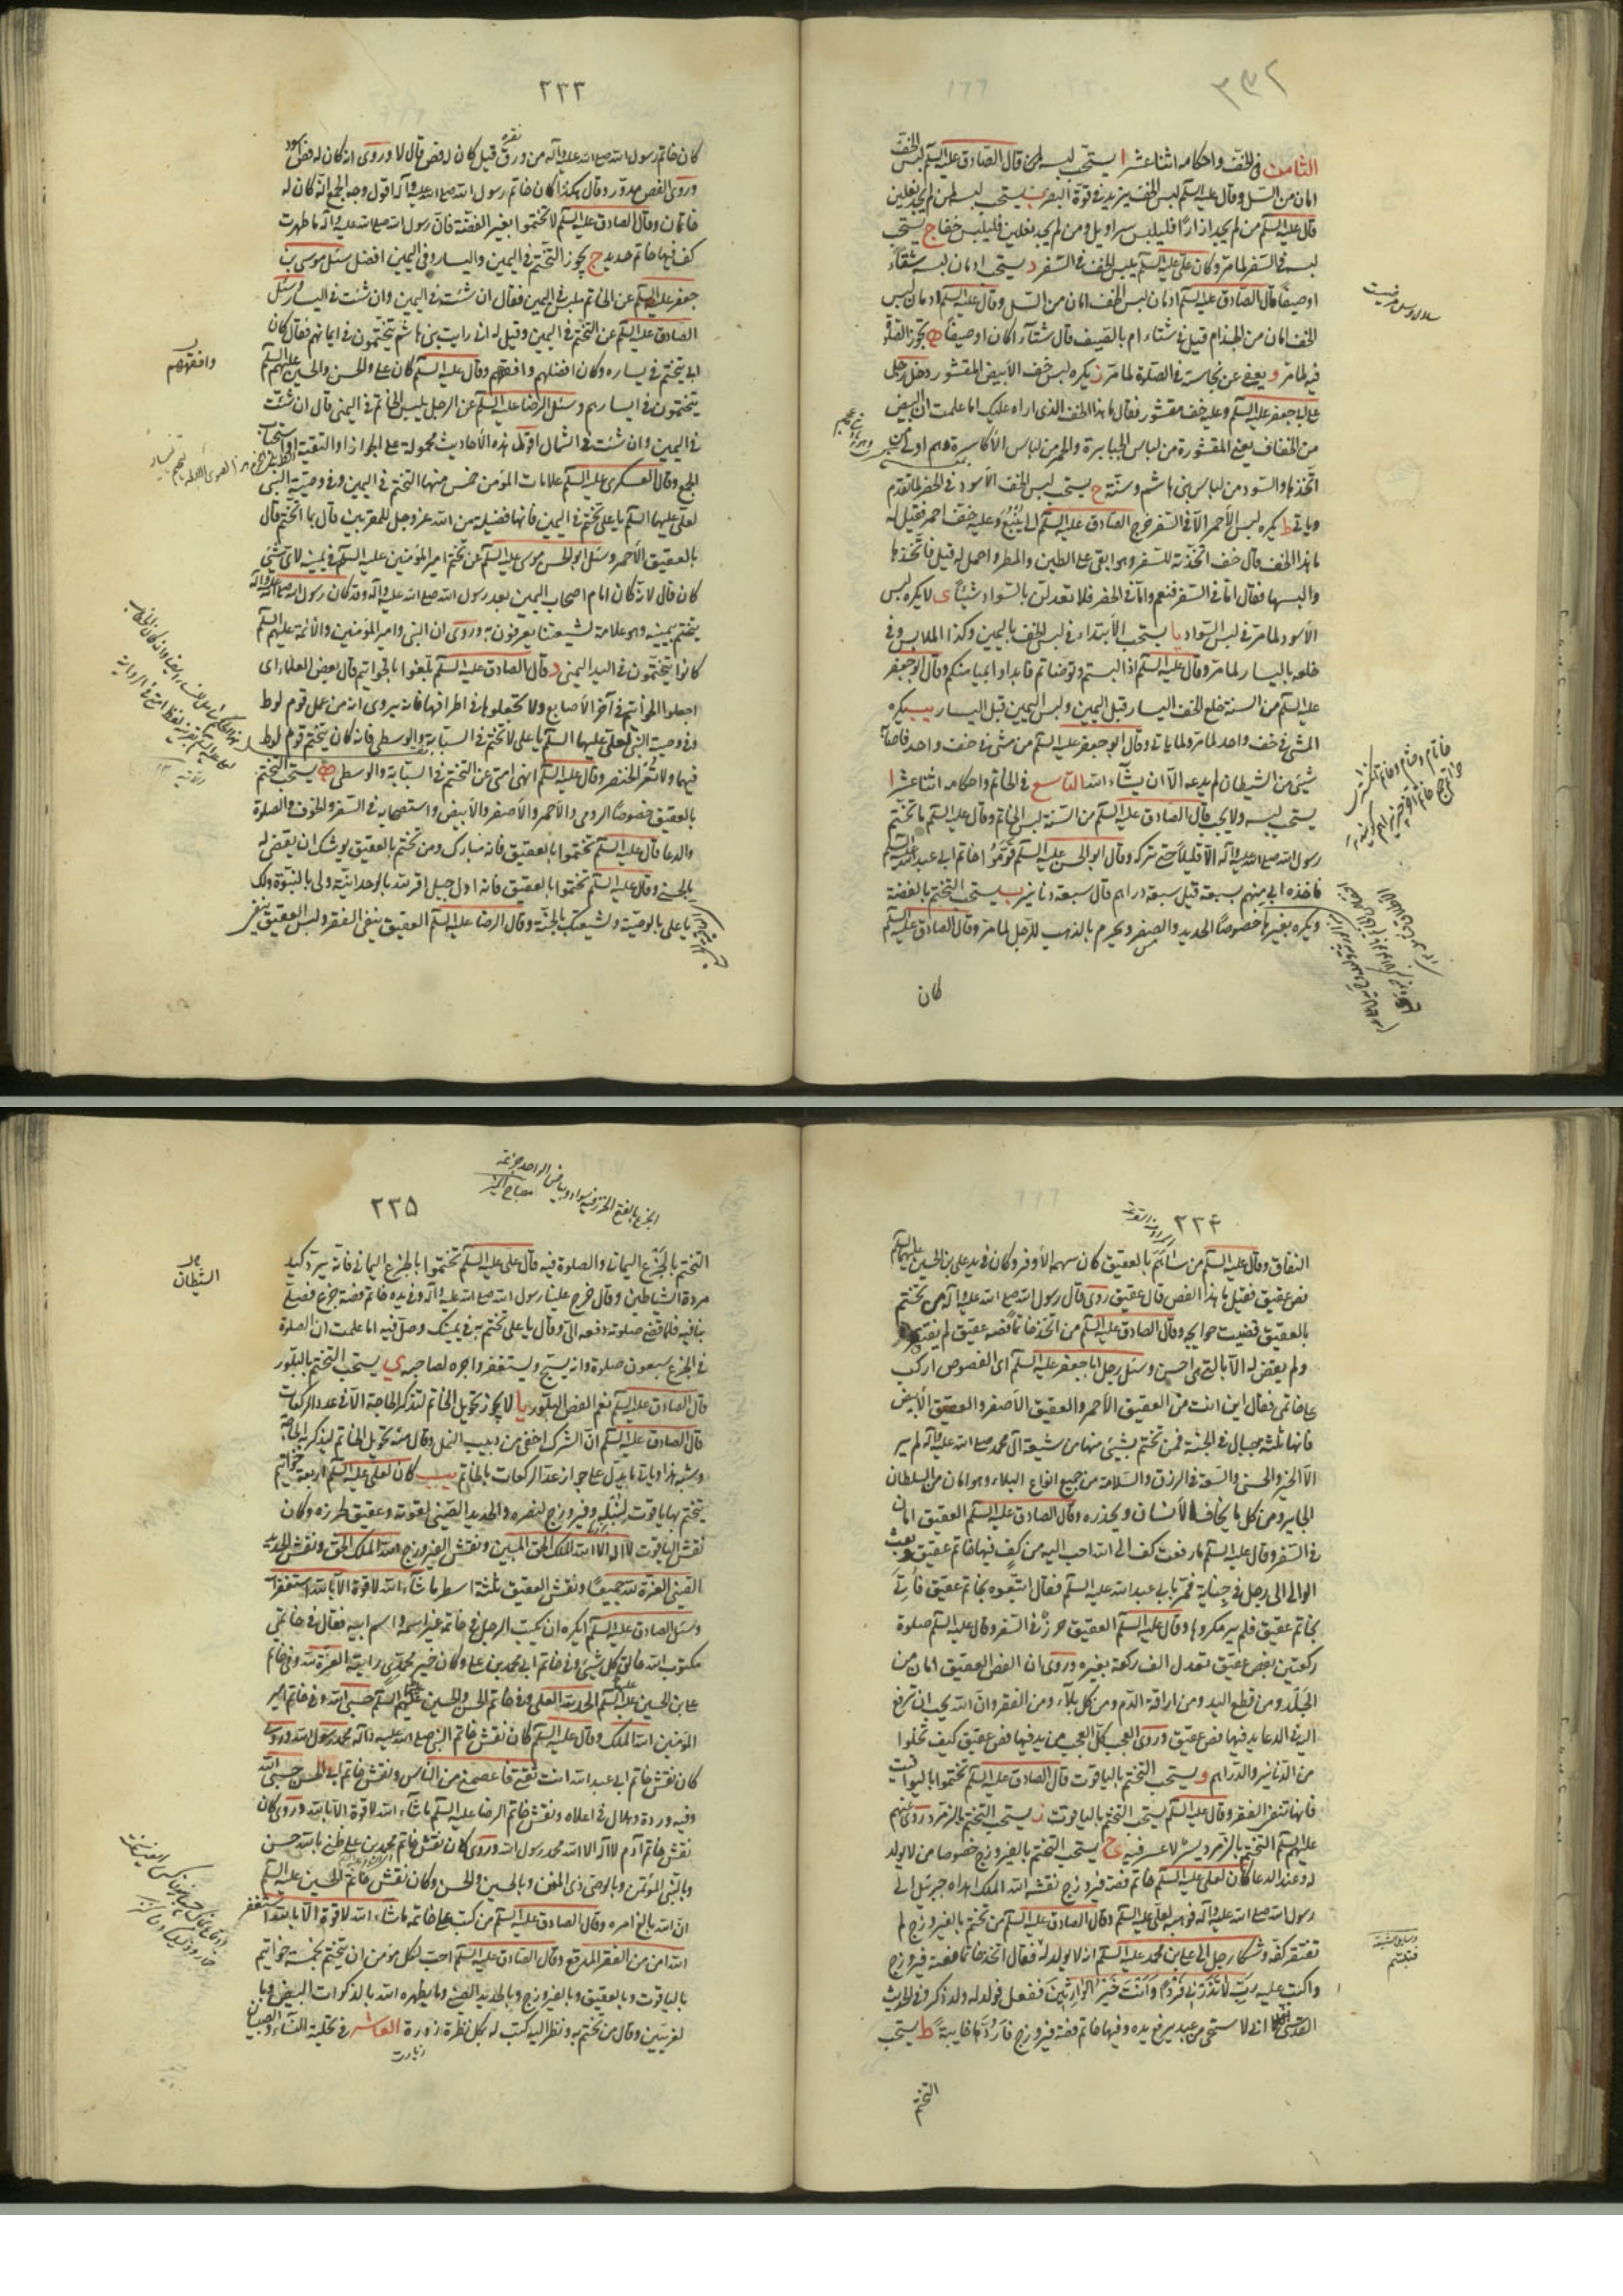 ۲۳۲
الثامن في الخف واحكامه اثنا عشر ا يستحب لبسه قال الصادق عليه السلم لبس الخف
امان من السل وقال عليه السلم لبس الخف يزيد في قوة البصر ب يستحب لبسه لمن لم يجد نعلين
قال عليه السلم من لم يجد ازارًا فليلبس سراويل ومن لم يجد نعلين فليلبس خفا ج يستحب
لبسه في السفر لما مر وكان علي عليه السلم يلبس الخف في السفر د يستحب ادمان لبسه شتاءً
او صيفًا قال الصادق عليه السلم ادمان لبس الخف امان من السل وقال عليه السلم ادمان لبس
الخف امان من الجذام قيل في شتاء ام بالصيف قال شتاء كان او صيفا ه تجوز الصلوة
فيه لما مر و يعفى عن نجاسته في الصلوة لما مر ز يكره لبس خف الابيض المقشور دخل رجل
على ابي جعفر عليه السلم وعليه خف مقشور فقال ما هذا الخف الذي اراه عليك اما علمت ان البيض
من الخفاف يعني المقشورة من لباس الجبابرة والحمر من لباس الاكاسرة وهم اول من
اتخذها والسود من لباس بني هاشم وسنة ح يستحب لبس الخف الاسود في الحضر لما تقدم
وياتي ط يكره لبس الاحمر الا في السفر خرج الصادق عليه السلم الى ينبع وعليه خف احمر فقيل له
ما هذا الخف قال خف اتخذته للسفر وهو ابقى على الطين والمطر واحمل له قيل فاتخذها
والبسها فقال اما في السفر فنعم واما في الحضر فلا تعدلن بالسواد شيئًا ى لا يكره لبس
الاسود لما مر في لبس السواد يا يستحب الابتداء في لبس الخف باليمين وكذا الملابس وفي
خلعه باليسار لما مر وقال عليه السلم اذا لبستم وتوضأتم فابدأوا بميامنكم وقال ابو جعفر
عليه السلم من السنة خلع الخف اليسار قبل اليمين ولبس اليمين قبل اليسار يب يكره
المشي في خف واحد لما مر ولما ياتي وقال ابو جعفر عليه السلم من مشى في خف واحد فاصابه
شيئ من الشيطان لم يدعه الا ان يشاء الله التاسع في الخاتم واحكامه اثنا عشر ا
يستحب لبسه ولا يجب قال الصادق عليه السلم من السنة لبس الخاتم وقال عليه السلم ما تختم
رسول الله صلى الله عليه وآله الا قليلًا حتى تركه وقال ابو الحسن عليه السلم قوموا خاتم ابي عبد الله عليه السلم
فاخذه ابي منهم بسبعة قيل سبعة دراهم قال سبعة دنانير ب يستحب التختم بالفضة
ويكره بغيرها خصوصًا الحديد والصفر ويحرم بالذهب للرجل لما مر وقال الصادق عليه السلم
كان
۲۳۳
كان خاتم رسول الله صلى الله عليه وآله من ورق قيل كان له فص قال لا وروى انه كان له فص اسود
نقره
وروى الفص مدور وقال هكذا كان خاتم رسول الله صلى الله عليه وآله اقول وجه الجمع انه كان له
خاتمان وقال الصادق عليه السلم لا تختموا بغير الفضة فان رسول الله صلى الله عليه وآله ما طهرت
كف فيها خاتم حديد ج يجوز التختم في اليمين واليسار وفي اليمين افضل سئل موسى بن
جعفر عليه السلم عن الخاتم يلبس في اليمين فقال ان شئت في اليمين وان شئت في اليسار وسئل
الصادق عليه السلم عن التختم في اليمين وقيل له اني رايت بني هاشم يتختمون في ايمانهم فقال كان
ابي يتختم في يساره وكان افضلهم وافقههم وقال عليه السلم كان علي والحسن والحسين عليهم السلم
وافقههم
يتختمون في ايسارهم وسئل الرضا عليه السلم عن الرجل يلبس الخاتم في اليمنى قال ان شئت
في اليمين وان شئت في الشمال اقول هذه الاحاديث محمولة على الجواز او التقية او استحباب
الجمع وقال العسكري عليه السلم علامات المؤمن خمس منها التختم في اليمين وفي وصية النبي
لعلي عليهما السلم يا علي تختم في اليمين فانها فضيلة من الله عز وجل للمقربين قال بما اتختم قال
بالعقيق الاحمر وسئل ابو الحسن موسى عليه السلم عن تختم امير المؤمنين عليه السلم في يمينه لاي شئ
كان قال لانه كان امام اصحاب اليمين بعد رسول الله صلى الله عليه وآله وقد كان رسول الله صلى الله عليه وآله
يتختم بيمينه وهو علامة لشيعتنا يعرفون به وروى ان النبي وامير المؤمنين والائمة عليهم السلم
كانوا يتختمون في اليد اليمنى د قال الصادق عليه السلم بلغوا بالخواتيم قال بعض العلماء اى
اجعلوا الخواتيم في آخر الاصابع ولا تجعلوها في اطرافها فانه يروى انه من عمل قوم لوط
وفي وصية النبي لعلي عليهما السلم يا علي لا تختم في السبابة والوسطى فانه كان يتختم قوم لوط
فيهما ولا تعر الخنصر وقال عليه السلم انهى امتي عن التختم في السبابة والوسطى ه يستحب التختم
بالعقيق خصوصًا الرومي والاحمر والاصفر والابيض واستصحابه في السفر والخوف والصلوة
والدعا قال عليه السلم تختموا بالعقيق فانه مبارك ومن تختم بالعقيق يوشك ان يقضى له
بالحسنى وقال عليه السلم تختموا بالعقيق فانه اول جبل اقر لله بالوحدانية ولى بالنبوة ولك
يا علي بالوصية ولشيعتك بالجنة وقال الرضا عليه السلم العقيق ينفي الفقر ولبس العقيق ينفي
۲۳۴
النفاق وقال عليه السلم من ساهم بالعقيق كان سهمه الاوفر وكان في يد علي بن الحسين عليهما السلم
فص عقيق فقيل ما هذا الفص قال عقيق رومي قال رسول الله صلى الله عليه وآله من تختم
بالعقيق قضيت حوايجه وقال الصادق عليه السلم من اتخذ خاتما فصه عقيق لم يفتقر
ولم يقض له الا بالتي هي احسن وسئل رجل ابا جعفر عليه السلم اى الفصوص اركب
على خاتمي فقال اين انت من العقيق الاحمر والعقيق الاصفر والعقيق الابيض
فانها ثلثة جبال في الجنة فمن تختم بشيئ منها من شيعة آل محمد صلى الله عليه وآله لم ير
الا الخير والحسنى والسعة في الرزق والسلامة من جميع انواع البلاء وهو امان من السلطان
الجاير ومن كل ما يخافه الانسان ويحذره وقال الصادق عليه السلم العقيق امان
في السفر وقال عليه السلم ما رفعت كف الى الله احب اليه من كف فيها خاتم عقيق وبعث
الوالي الى رجل في جناية فمر بابي عبد الله عليه السلم فقال اتبعوه بخاتم عقيق فأتي
بخاتم عقيق فلم ير مكروها وقال عليه السلم العقيق حرز في السفر وقال عليه السلم صلوة
ركعتين بفص عقيق تعدل الف ركعة بغيره وروى ان الفص العقيق امان من
الجلد ومن قطع اليد ومن اراقة الدم ومن كل بلاء ومن الفقر وان الله يحب ان ترفع
اليه في الدعا يد فيها فص عقيق وروى العجب كل العجب من يد فيها فص عقيق كيف تخلوا
من الدنانير والدراهم و يستحب التختم بالياقوت قال الصادق عليه السلم تختموا باليواقيت
فانها تنفي الفقر وقال عليه السلم يستحب التختم بالياقوت ز يستحب التختم بالزمرد روى عنهم
عليهم السلم التختم بالزمرد يسر لا عسر فيه ح يستحب التختم بالفيروزج خصوصا من لا يولد
له وعند الدعا كان لعلي عليه السلم خاتم فصه فيروزج نقشه الله الملك اهداه جبرئيل الى
رسول الله صلى الله عليه وآله فوهبه لعلي عليه السلم وقال الصادق عليه السلم من تختم بالفيروزج لم
تفتقر كفه وشكا رجل الى علي بن محمد عليه السلم انه لا يولد له فقال اتخذ خاتما فصه فيروزج
واكتب عليه رب لا تذرني فردًا وانت خير الوارثين ففعل فولد له ولد ذكر وفي الحديث
القدسي اني لا ستحي من عبد يرفع يده وفيها خاتم فصه فيروزج فاردها خايبة ط يستحب
التختم
۲۳۵
التختم بالجزع اليماني والصلوة فيه قال علي عليه السلم تختموا بالجزع اليماني فانه يرد كيد
الشيطان
مردة الشياطين وقال خرج علينا رسول الله صلى الله عليه وآله وفي يده خاتم فصه جزع فصلى
بنا فيه فلما قضى صلوته دفعه الي وقال يا علي تختم به في يمينك وصل فيه اما علمت ان الصلوة
في الجزع سبعون صلوة وانه يسبح ويستغفر واجره لصاحبه ى يستحب التختم بالبلور
قال الصادق عليه السلم نعم الفص البلور يا لا يجوز تحويل الخاتم لتذكر الحاجة الا في عدد الركعات
قال الصادق عليه السلم ان الشرك اخفى من دبيب النمل وقال منه تحويل الخاتم ليذكر الحاجة
وشبه هذا وياتي ما يدل على جواز عد الركعات بالخاتم يب كان لعلي عليه السلم اربعة خواتيم
يتختم بها ياقوت لنبله وفيروزج لنصره والحديد الصيني لقوته وعقيق لحرزه وكان
نقش الياقوت لا اله الا الله الملك الحق المبين ونقش الفيروزج الله الملك الحق ونقش الحديد
الصيني العزة لله جميعًا ونقش العقيق ثلثة اسطر ما شاء الله لا قوة الا بالله استغفر الله
وسئل الصادق عليه السلم ايكره ان يكتب الرجل في خاتمه غير اسمه واسم ابيه فقال في خاتمي
مكتوب الله خالق كل شيئ وفي خاتم ابي محمد بن علي وكان خير محمدي رايته العزة لله وفي خاتم
علي بن الحسين عليه السلم الحمد لله العلي وفي خاتم الحسن والحسين عليهما السلم حسبي الله وفي خاتم امير
المؤمنين الله الملك وقال عليه السلم كان نقش خاتم النبي صلى الله عليه وآله محمد رسول الله وروى
كان نقش خاتم ابي عبد الله انت ثقتي فاعصمني من الناس ونقش خاتم ابي الحسن حسبي الله
وفيه وردة وهلال في اعلاه ونقش خاتم الرضا عليه السلم ما شاء الله لا قوة الا بالله وروى كان
نقش خاتم آدم لا اله الا الله محمد رسول الله وروى كان نقش خاتم محمد بن علي ظني بالله حسن
وبالنبي المؤتمن وبالوصي ذى المنن وبالحسين والحسن وكان نقش خاتم الحسين عليه السلم
ان الله بالغ امره وقال الصادق عليه السلم من كتب على خاتمه ما شاء الله لا قوة الا بالله استغفر
الله امن من الفقر المدقع وقال الصادق عليه السلم احب لكل مؤمن ان يتختم بخمسة خواتيم
بالياقوت وبالعقيق وبالفيروزج وبالحديد الصيني وما يظهره الله بالذكوات البيض وبا
لغريين وقال من تختم به ونظر اليه كتب له بكل نظرة زورة العاشر في تحلية النساء والصبيان